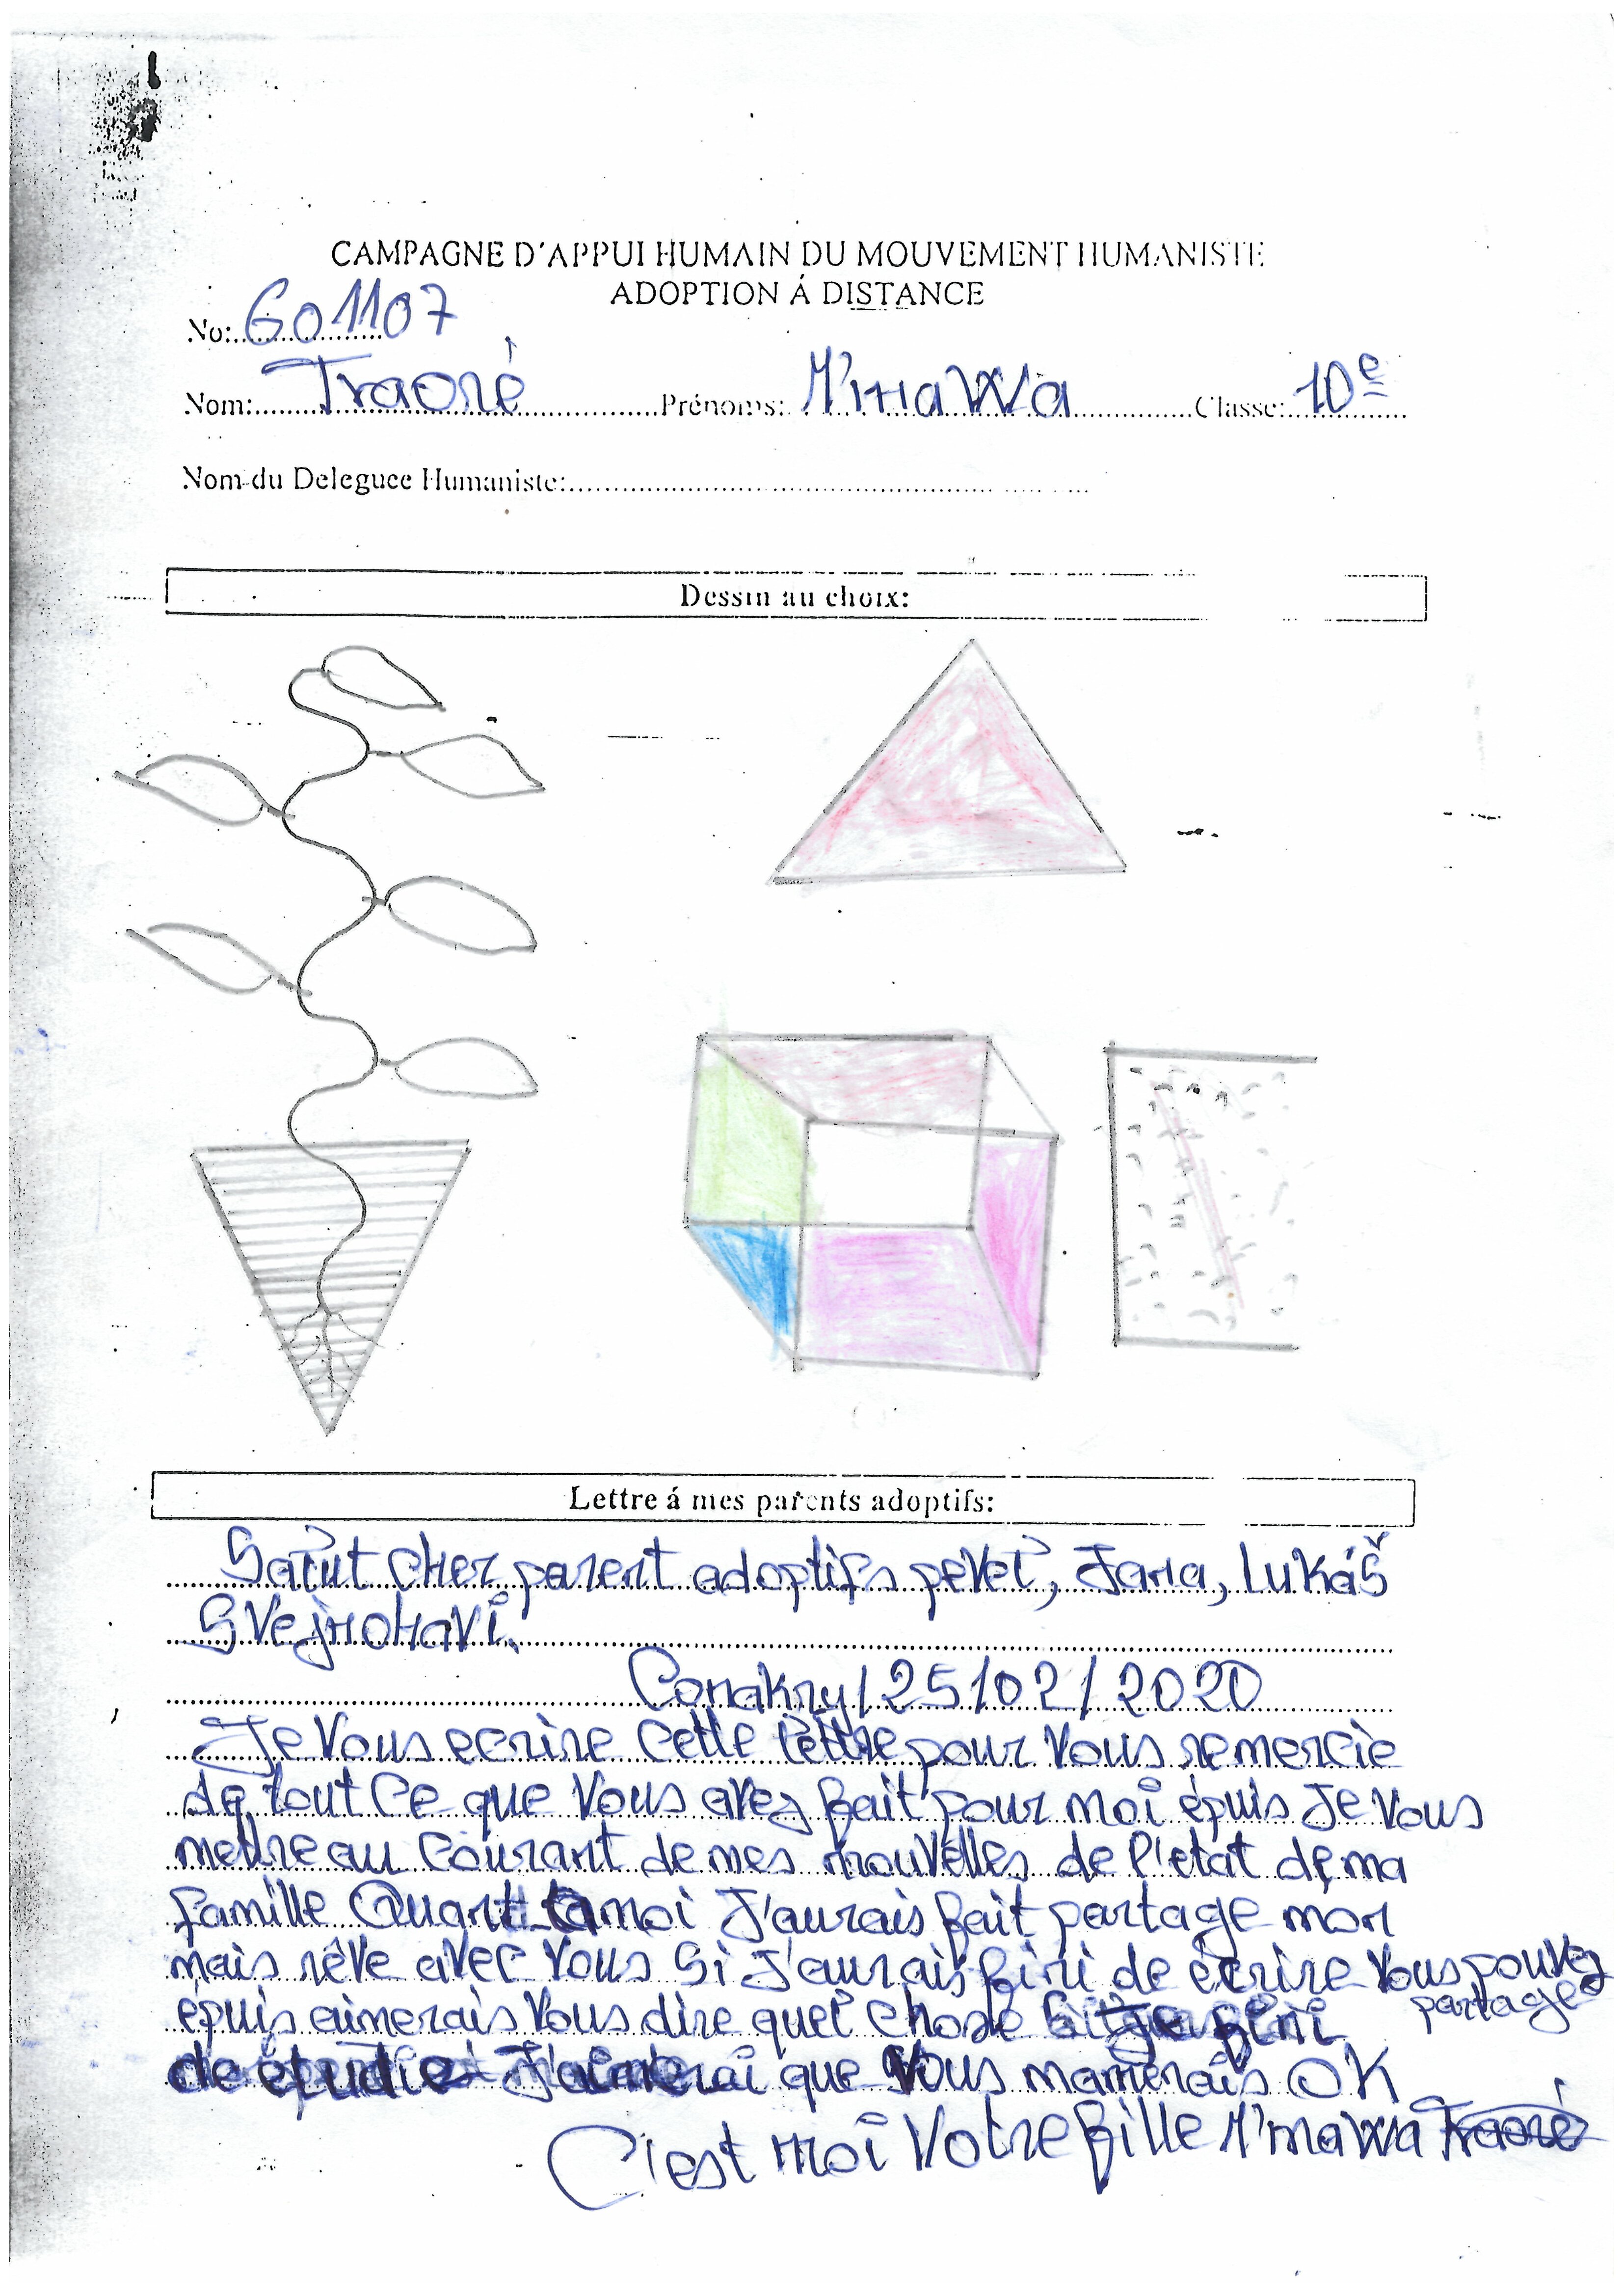 CAMPAGNE D'APPUI HUMAIN DU MOUVEMENT HUMANISTE
ADOPTION Á DISTANCE
No: G01107
Nom: Traoré Prénoms: M'mawa Classe: 10e
Nom du Deleguee Humaniste:
Dessin au choix:
Lettre á mes parents adoptifs:
Salut cher parent adoptifs pevel, Jana, Lukáš
Svejnohavi.
Conakry/25/02/2020
Je Vous ecrire cette lettre pour Vous remercie
de tout ce que Vous avez fait pour moi épuis Je Vous
mettre au courant de mes nouvelles de l'etat de ma
famille Quant à moi J'aurais fait partage mon
mais rêve avec Vous Si J'aurais fini de écrire Vous pouvez
partage
épuis aimerais Vous dire quel chose Je fini
de étudie J'aimerai que Vous OK
C'est moi Votre fille M'mawa Traoré